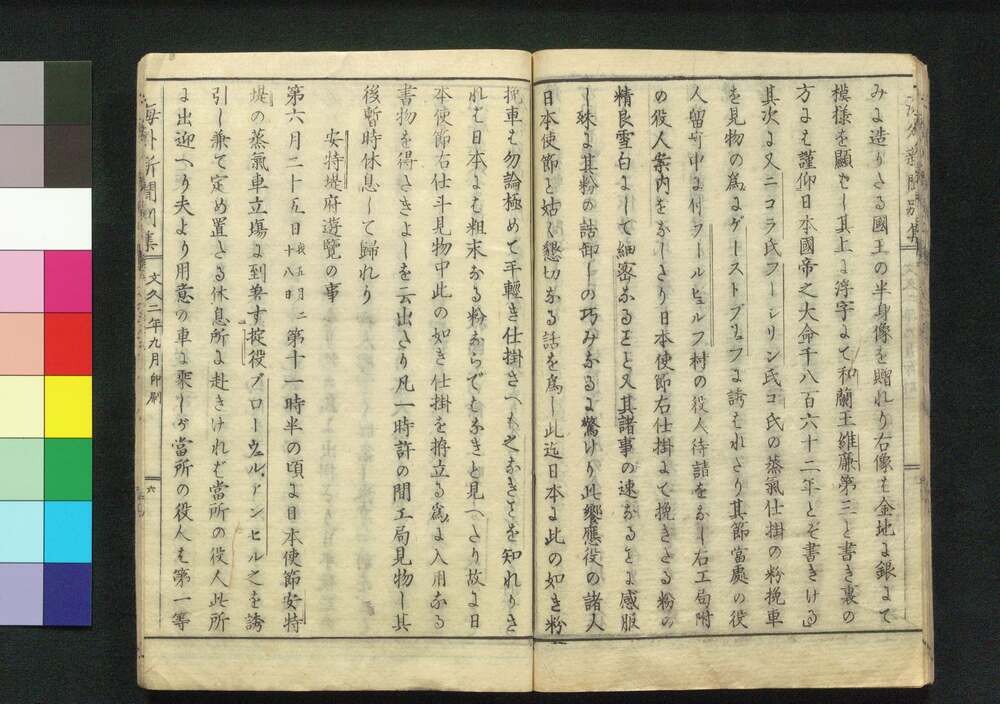 みに造りたる國王の半身像を贈れり右像も金地に銀にて
模様を顯せし其上に浮字にて和蘭王維廉第三と書き裏の
方にも謹仰日本國帝之大命千八百六十二年とぞ書きける
其次に又ニコラ氏フーシリン氏コ氏の蒸氣仕掛の粉挽車
を見物の為にゲーストブセフに誘はれたり其節當處の役
人留守中に付ヲールヒュルフ村の役人待請をなし右工局附
の役人案内をなしたり日本使節右仕掛にて挽きたる粉の
精良雪白にして細密なること又其諸事の速なるをに感服
し殊に其粉の詰卸しの巧みなるに驚けり此饗應役の諸人
日本使節と姑く懇切なる話を為し此迄日本に此の如き粉
挽車は勿論極めて手輕き仕掛さへも之なきことを知れりさ
れば日本にも粗末なる粉ならでもなきと見へたり故に日
本使節右仕斗見物中此の如き仕掛を搆立る為に入用なる
書物を得たきよしを云出たり凡一時許の間工局見物し其
後暫時休息して歸れり
安特堤府遊覽の事
第六月二十五日我五月二十八日第十一時半の頃に日本使節安特
堤の蒸氣車立塲に到著す掟役ブローウェル、アンセル之を誘
引し兼て定め置きたる休息所に赴きければ當所の役人此所
に出迎へり夫より用意の車に乘しが當所の役人も第一等
海外新聞別集
文久二年九月印刷
六